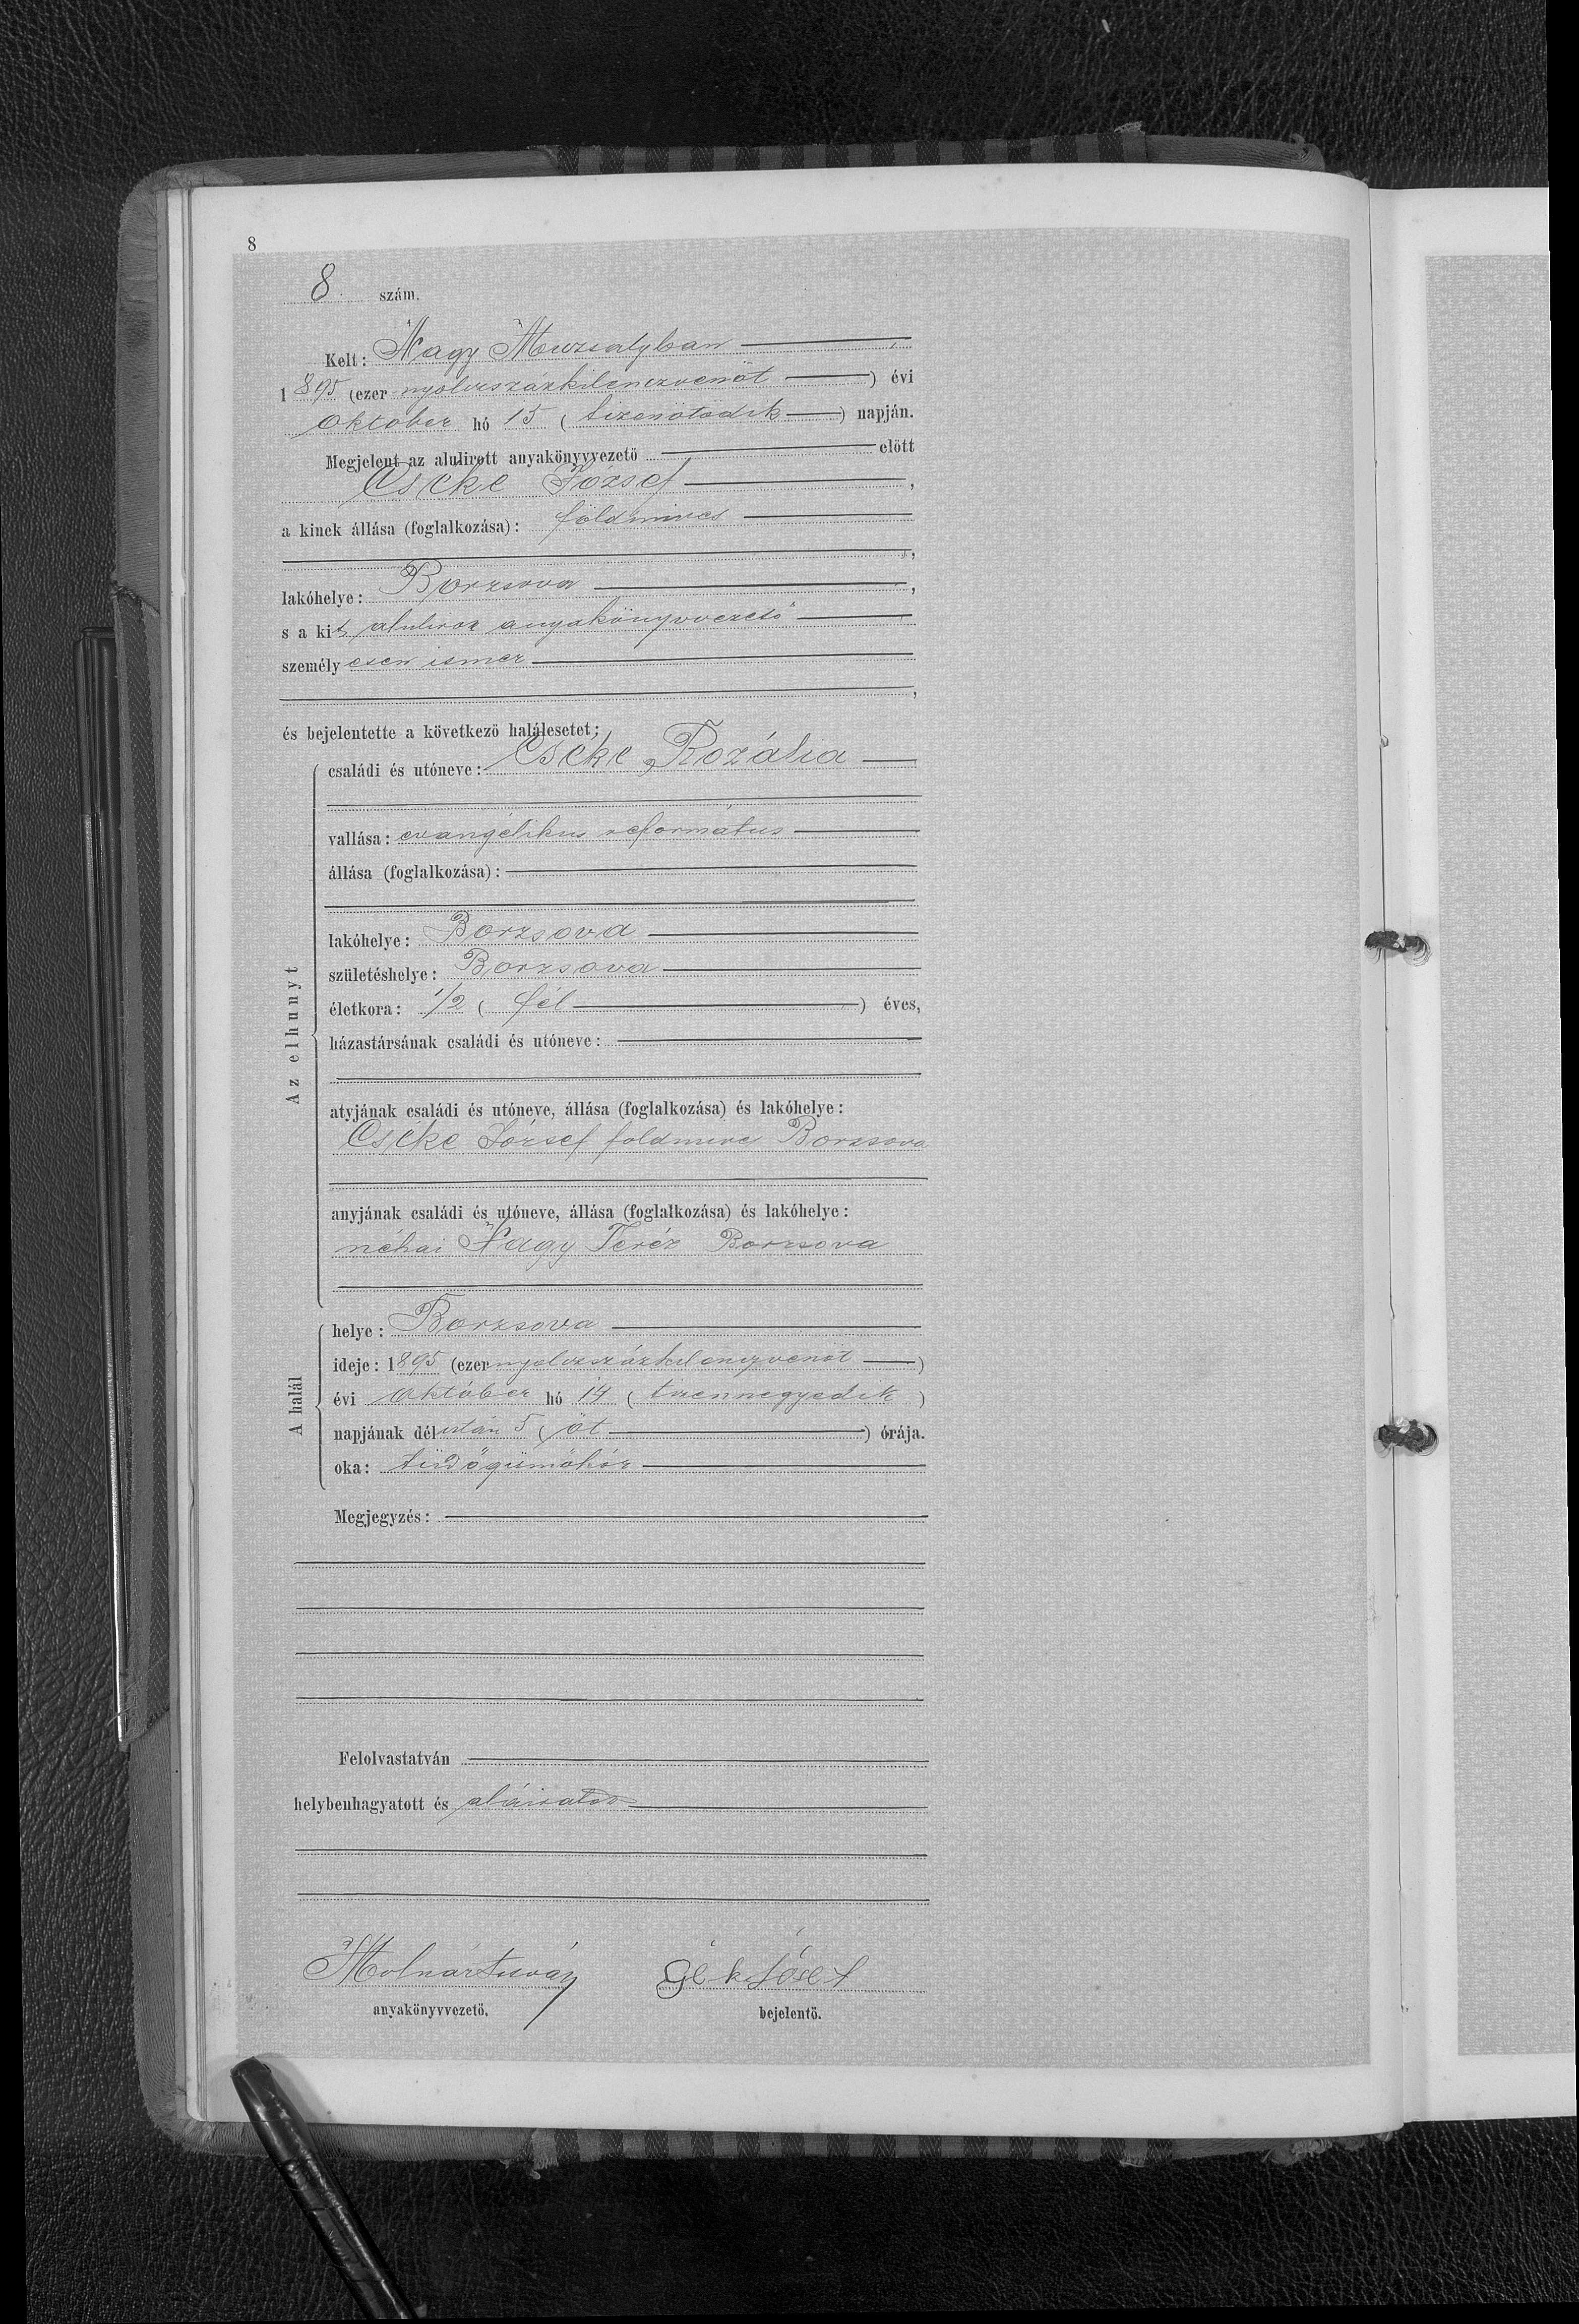 8
8. szám.
Kelt: Nagy Muzsalyban,
1895 (ezer nyolczszázkilenczvenöt) évi
október hó 15 (tizenötödik) napján.
Megjelent az alulirott anyakönyvvezető előtt
Cseke József,
a kinek állása (foglalkozása): földmives
,
lakóhelye: Borzsova,
s a kit aluliroz anyakönyvvezető
személyesen ismer
,
és bejelentette a következő halálesetet:
családi és utóneve: Cseke Rozália
vallása: evangélikus református
állása (foglalkozása):
lakóhelye: Borzsova
születéshelye: Borzsova
életkora: 1/2 (fél) éves,
Az elhunyt
házastársának családi és utóneve:
atyjának családi és utóneve, állása (foglalkozása) és lakóhelye:
Cseke József földmives Borzsova
anyjának családi és utóneve, állása (foglalkozása) és lakóhelye:
néhai Nagy Teréz Borzsova
helye: Borzsova
ideje: 1895 (ezer nyolczszázkilenczvenöt)
évi október hó 14 (tizennegyedik)
A halál
napjának délután 5 (öt) órája.
oka: tüdőgümőkór
Megjegyzés:
Felolvastatván
helybenhagyatott és aláiratott
Molnár István
anyakönyvvezető.
József
bejelentő.